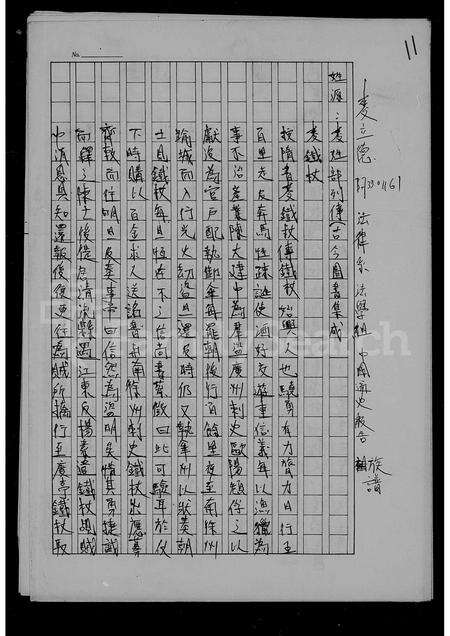 11
麦立德
法律系法學組 中國通史報告
族譜
No.
姓源：麥姓部列傳 古今圖書集成
麥鐵杖
按隋書麥鐵杖傳鐵杖始興人也驍勇有力膂力日行五
百里走及奔馬性疎誕使酒好交遊重信義每以漁獵為
事不治產業陳大建中為羣盜廣州刺史歐陽頠俘之以
獻沒為官戶配執御傘每罷朝後行百餘里夜至南徐州
踰城而入行光火劫盜旦還及時仍又執傘州以狀奏朝
士見鐵杖每旦恆在不之信尚書蔡徵曰此可驗耳於仗
下時購以百金求人送詔書於南徐州刺史鐵杖出應募
齎敕而往明旦反奏事帝曰信然為盜明矣惜其勇捷誡
而釋之陳亡後徙居清流縣遇江東反楊素遣鐵杖覘賊
中消息具知還報後復更往為賊所擒行至庱亭鐵杖取